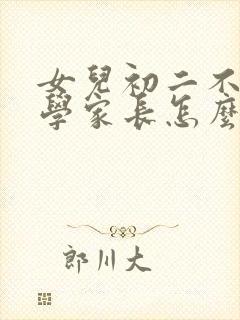 女兒初二不
學家長怎麼
郎川大